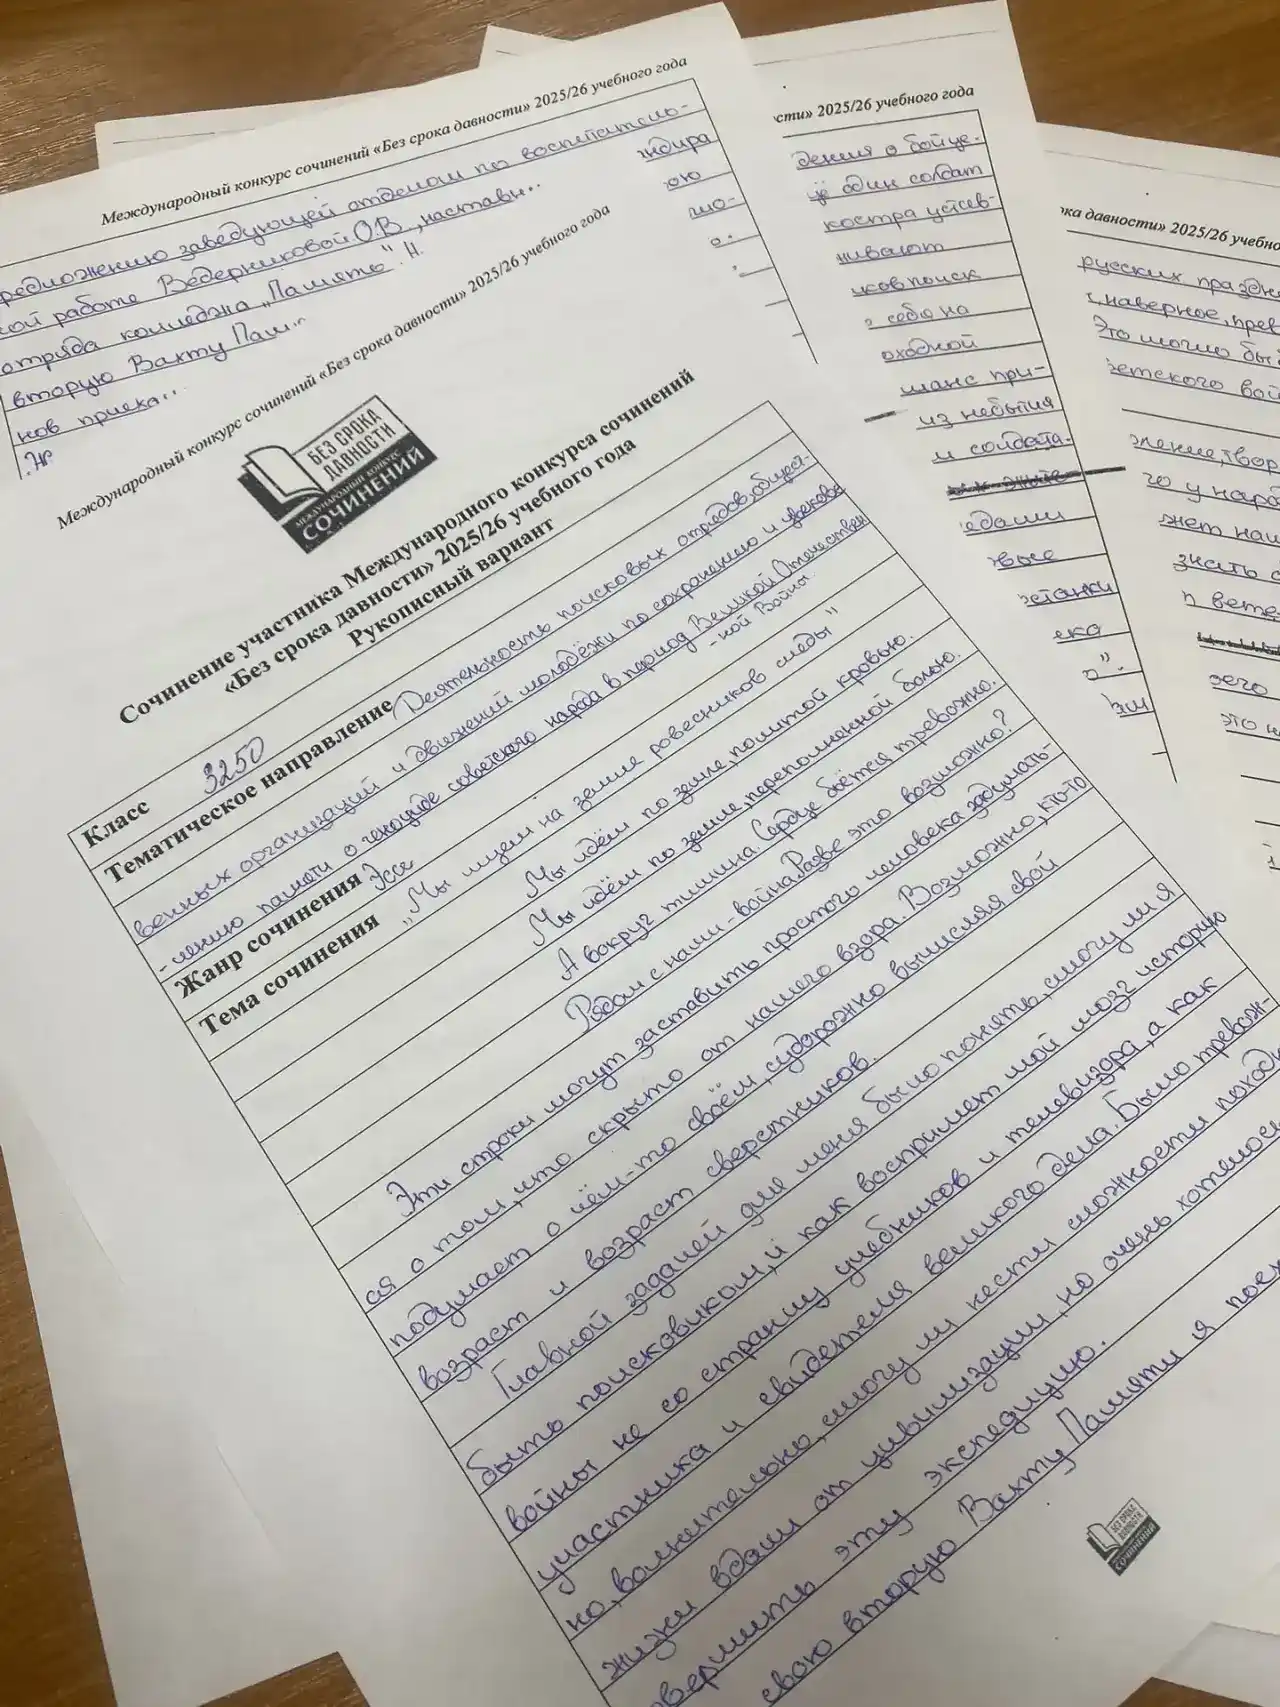 Международный конкурс сочинений «Без срока давности» 2025/26 учебного года
заведующей отделом по воспитатель-
ной работе Ведерниковой О.В., настави
отряда колледжа „Память“. Н.
вторую Вахту Пам
нов приеха
Международный конкурс сочинений «Без срока давности» 2025/26 учебного года
БЕЗ СРОКА
ДАВНОСТИ
МЕЖДУНАРОДНЫЙ КОНКУРС
СОЧИНЕНИЙ
Сочинение участника Международного конкурса сочинений
«Без срока давности» 2025/26 учебного года
Рукописный вариант
Класс 3250
Тематическое направление Деятельность поисковых отрядов, общест-
венных организаций и движений молодёжи по сохранению и увекове
-чению памяти о геноциде советского народа в период Великой Отечествен
-ной Войны
Жанр сочинения Эссе
Тема сочинения „Мы ищем на земле ровесников следы"
Мы идём по земле, политой кровью.
Мы идём по земле, переполненной болью.
А вокруг тишина. Сердце бьётся тревожно.
Рядом с нами - война. Разве это возможно?
Эти строки могут заставить простого человека задумать-
ся о том, что скрыто от нашего взора. Возможно, кто-то
подумает о чём-то своём, судорожно вычисляя свой
возраст и возраст сверстников.
Главной задачей для меня было понять, смогу ли я
быть поисковиком, и как воспримет мой мозг историю
войны не со страниц учебников и телевизора, а как
участника и свидетеля великого дела. Было тревож-
но, волнительно, смогу ли нести сложности походн
жизни вдали от цивилизации, но очень хотелось
вершить эту экспедицию.
свою вторую Вахту Памяти я поех
БЕЗ СРОКА
ДАВНОСТИ
СОЧИНЕНИЙ
ндира
ою
сти» 2025/26 учебного года
дения о бойце.
один солдат
костра устав-
ивают
иковпоиск
себо на
оходной
шанс при-
из небытия
и солдата.
едами
останки
ека
о".
ока давности» 2025/26 учебно
русских праздн
наверное, прев
Это могло бы
ветского вои
ление, твор
го у наро
жет наш
знать о
ветe
это н